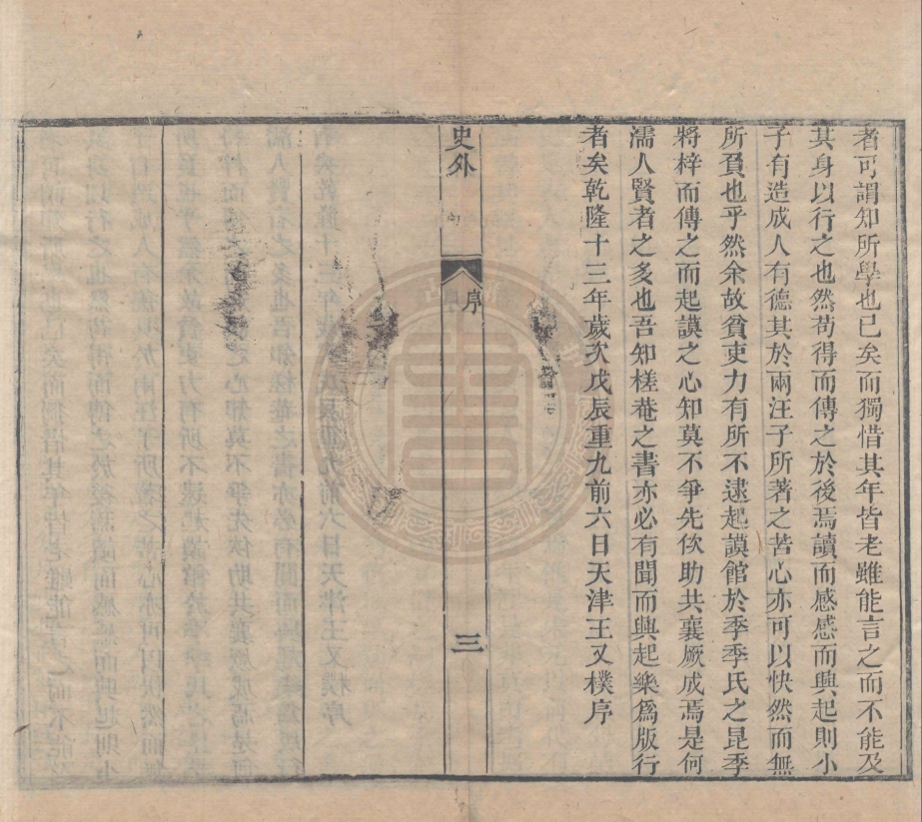 者可謂知所學也已矣而獨惜其年皆老雖能言之而不能及
其身以行之也然苟得而傳之於後焉讀而感感而興起則小
子有造成人有德其於兩汪子所著之苦心亦可以快然而無
所負也乎然余故貧吏力有所不逮起謨館於季季氏之昆季
將梓而傳之而起謨之心知莫不爭先佽助共襄厥成焉是何
濡人賢者之多也吾知槎菴之書亦必有聞而興起樂爲版行
者矣乾隆十三年歲次戊辰重九前六日天津王又樸序
史外
序
三